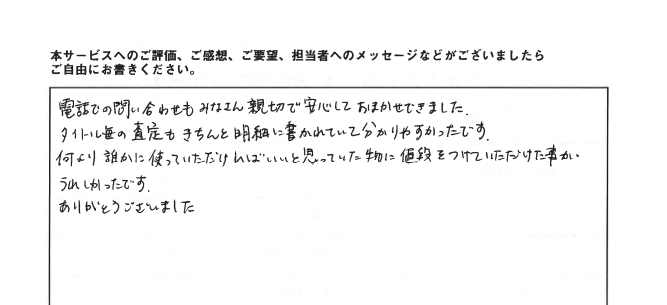 本サービスへのご評価、ご感想、ご要望、担当者へのメッセージなどがございましたら
ご自由にお書きください。
電話での問い合わせもみなさん親切で安心しておまかせできました.
タイトル毎の査定もきちんと明細に書かれていて分かりやすかったです.
何より誰かに使っていただければいいと思っていた物に値段をつけていただけた事が
うれしかったです.
ありがとうございました